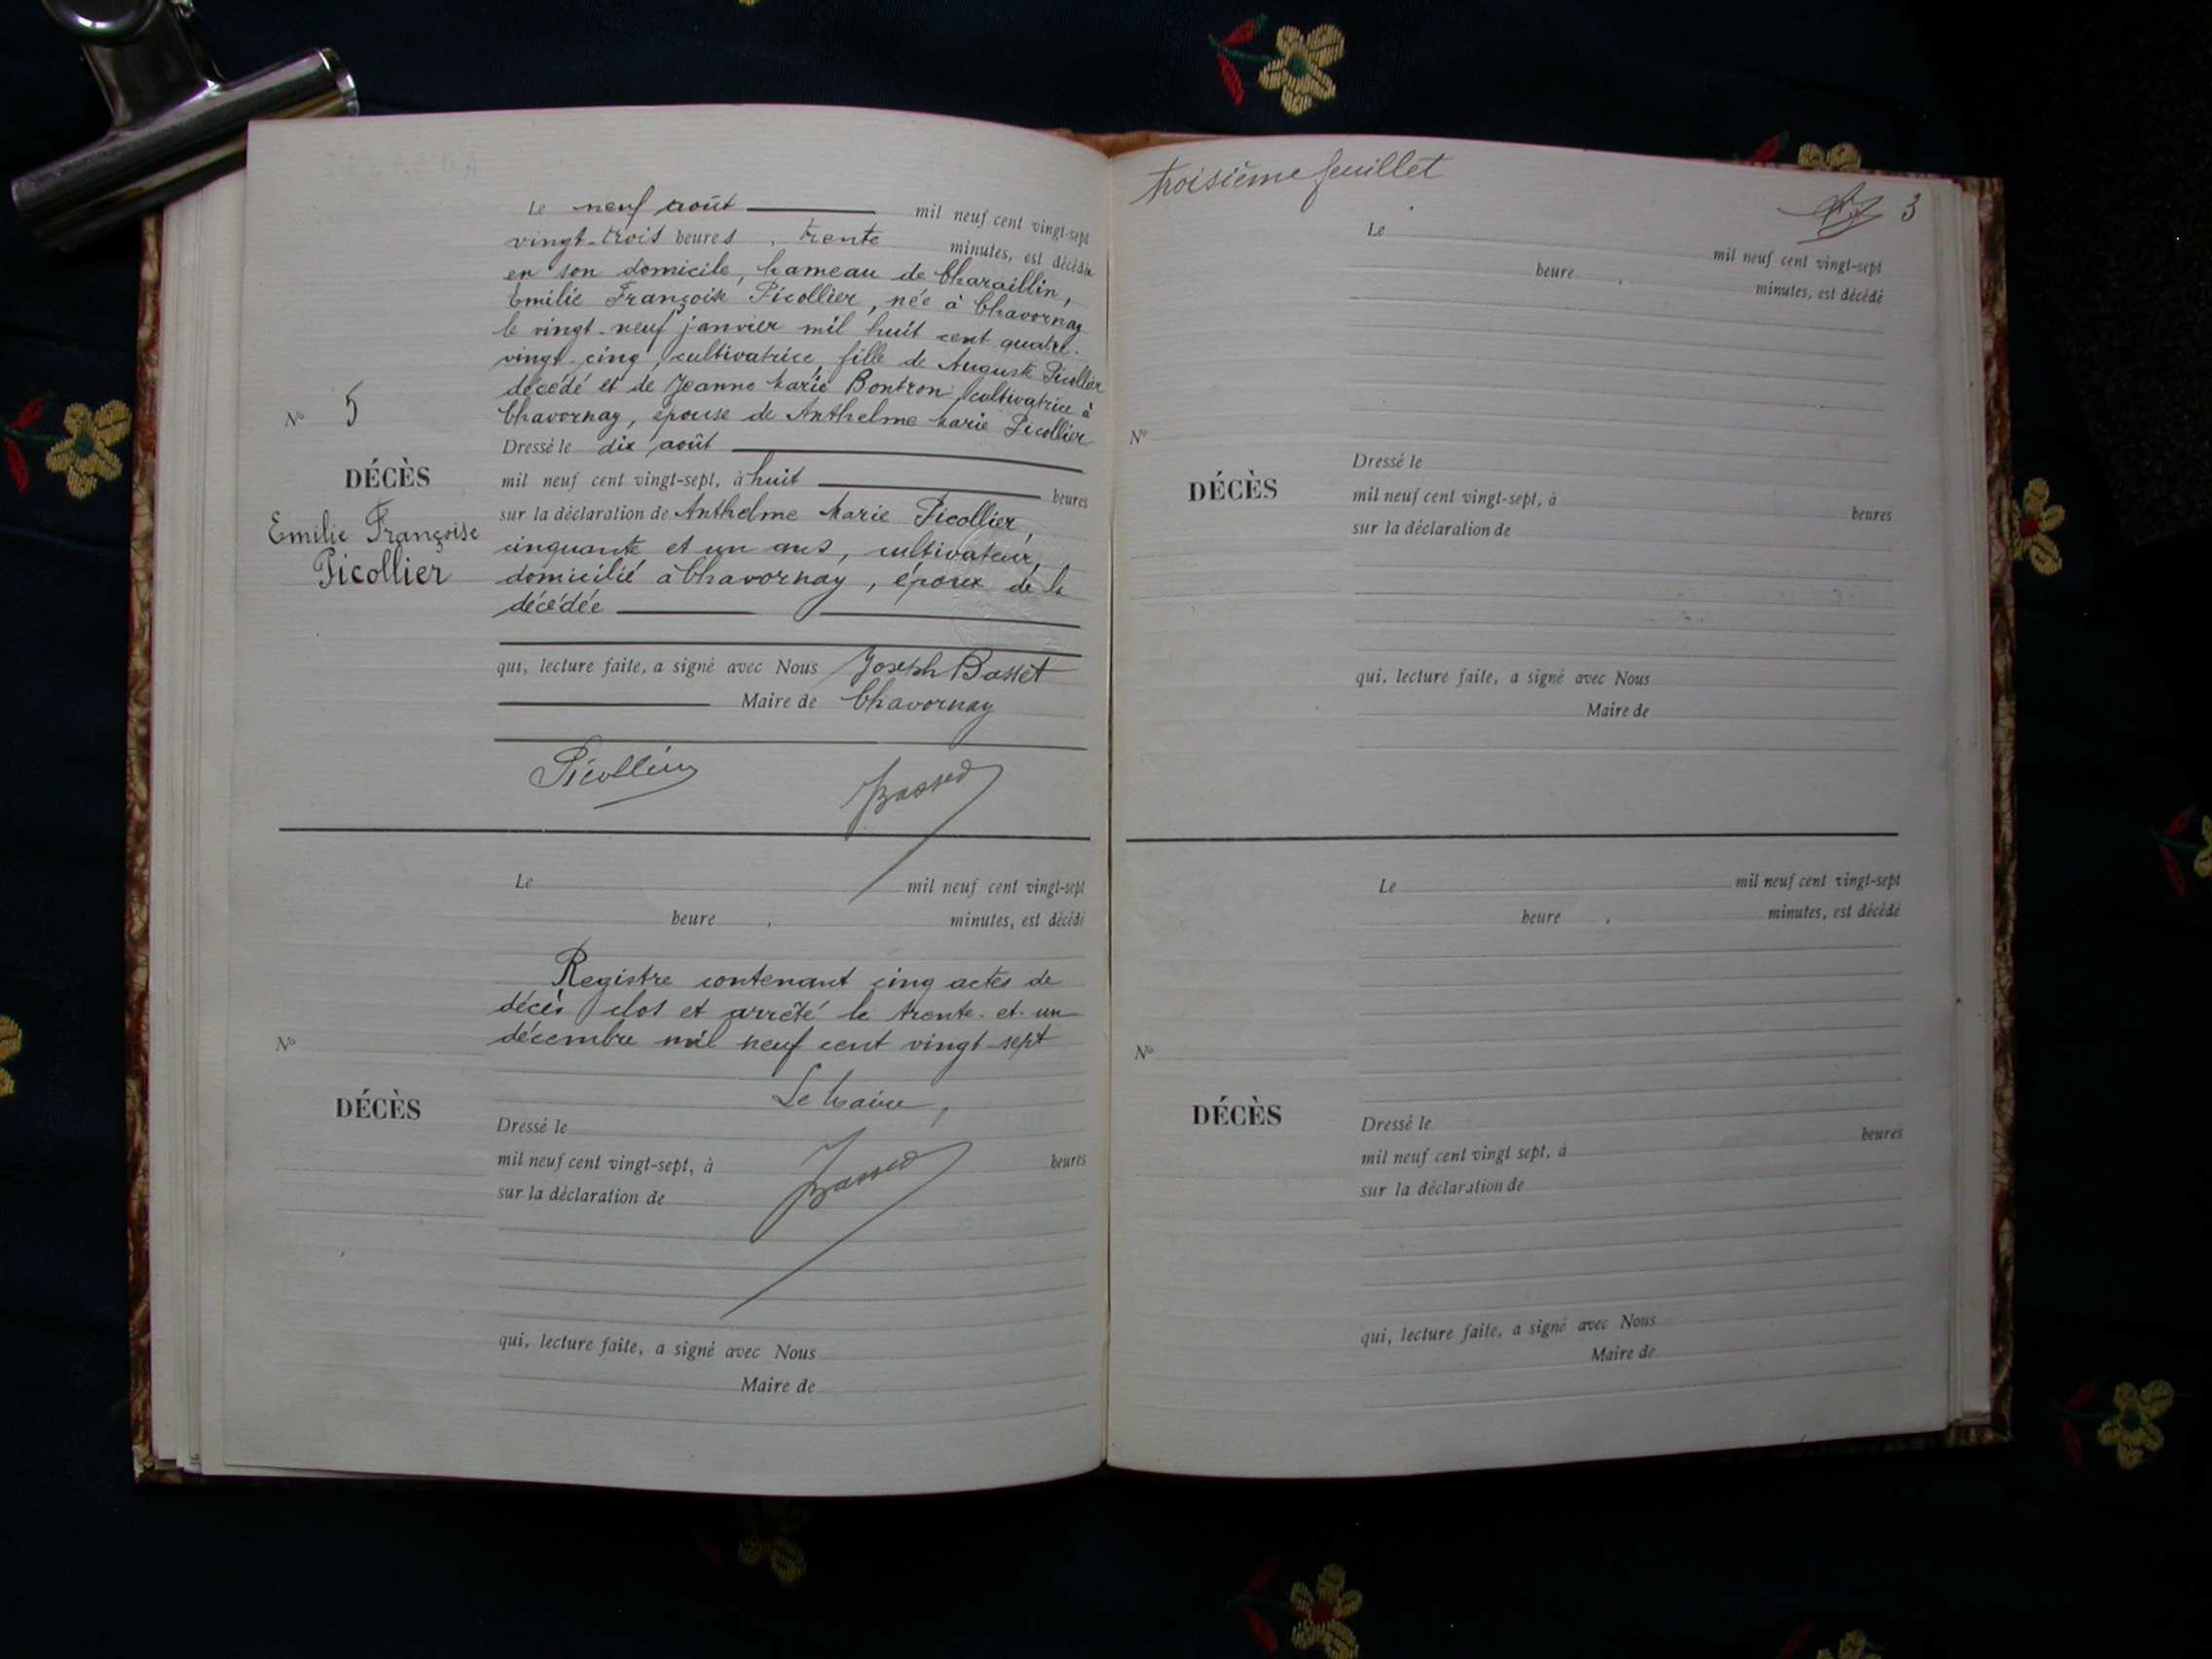 Le neuf août mil neuf cent vingt-sept
vingt-trois heures, trente minutes, est décédée
en son domicile, hameau de Charaillin,
Emilie Françoise Picollier, née à Chavornay
le vingt-neuf janvier mil huit cent quatre-
vingt cinq, cultivatrice, fille de Auguste Picollier
décédé et de Jeanne Marie Bontron, cultivatrice à
Chavornay, épouse de Anthelme Marie Picollier
N° 5
Dressé le dix août
DÉCÈS
mil neuf cent vingt-sept, à huit heures
Emilie Françoise
Picollier
sur la déclaration de Anthelme Marie Picollier,
cinquante et un ans, cultivateur,
domicilié à Chavornay, époux de la
décédée
qui, lecture faite, a signé avec Nous Joseph Basset
Maire de Chavornay
Picollier
Basset
Le mil neuf cent vingt-sept
heure , minutes, est décédé
Registre contenant cinq actes de
décès clos et arrêté le trente-et-un
décembre mil neuf cent vingt-sept
Le Maire,
N°
DÉCÈS
Dressé le
mil neuf cent vingt-sept, à heures
Basset
sur la déclaration de
qui, lecture faite, a signé avec Nous
Maire de
troisième feuillet
3
Le mil neuf cent vingt-sept
heure , minutes, est décédé
N°
DÉCÈS
Dressé le
mil neuf cent vingt-sept, à heures
sur la déclaration de
qui, lecture faite, a signé avec Nous
Maire de
Le mil neuf cent vingt-sept
heure , minutes, est décédé
N°
DÉCÈS
Dressé le
mil neuf cent vingt sept, à heures
sur la déclaration de
qui, lecture faite, a signé avec Nous
Maire de